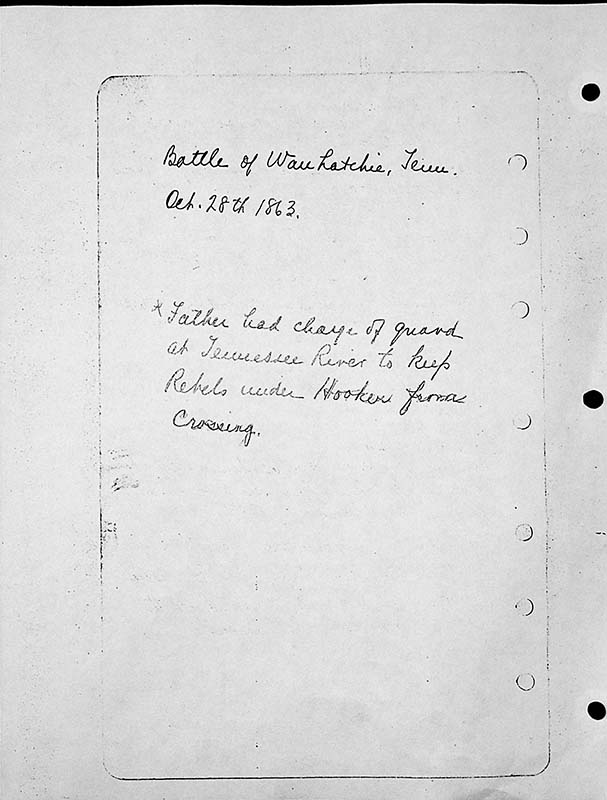 Battle of Wauhatchie, Tenn.
Oct. 28th 1863.
* Father had charge of guard
at Tennessee River to keep
Rebels under Hooker from
Crossing.